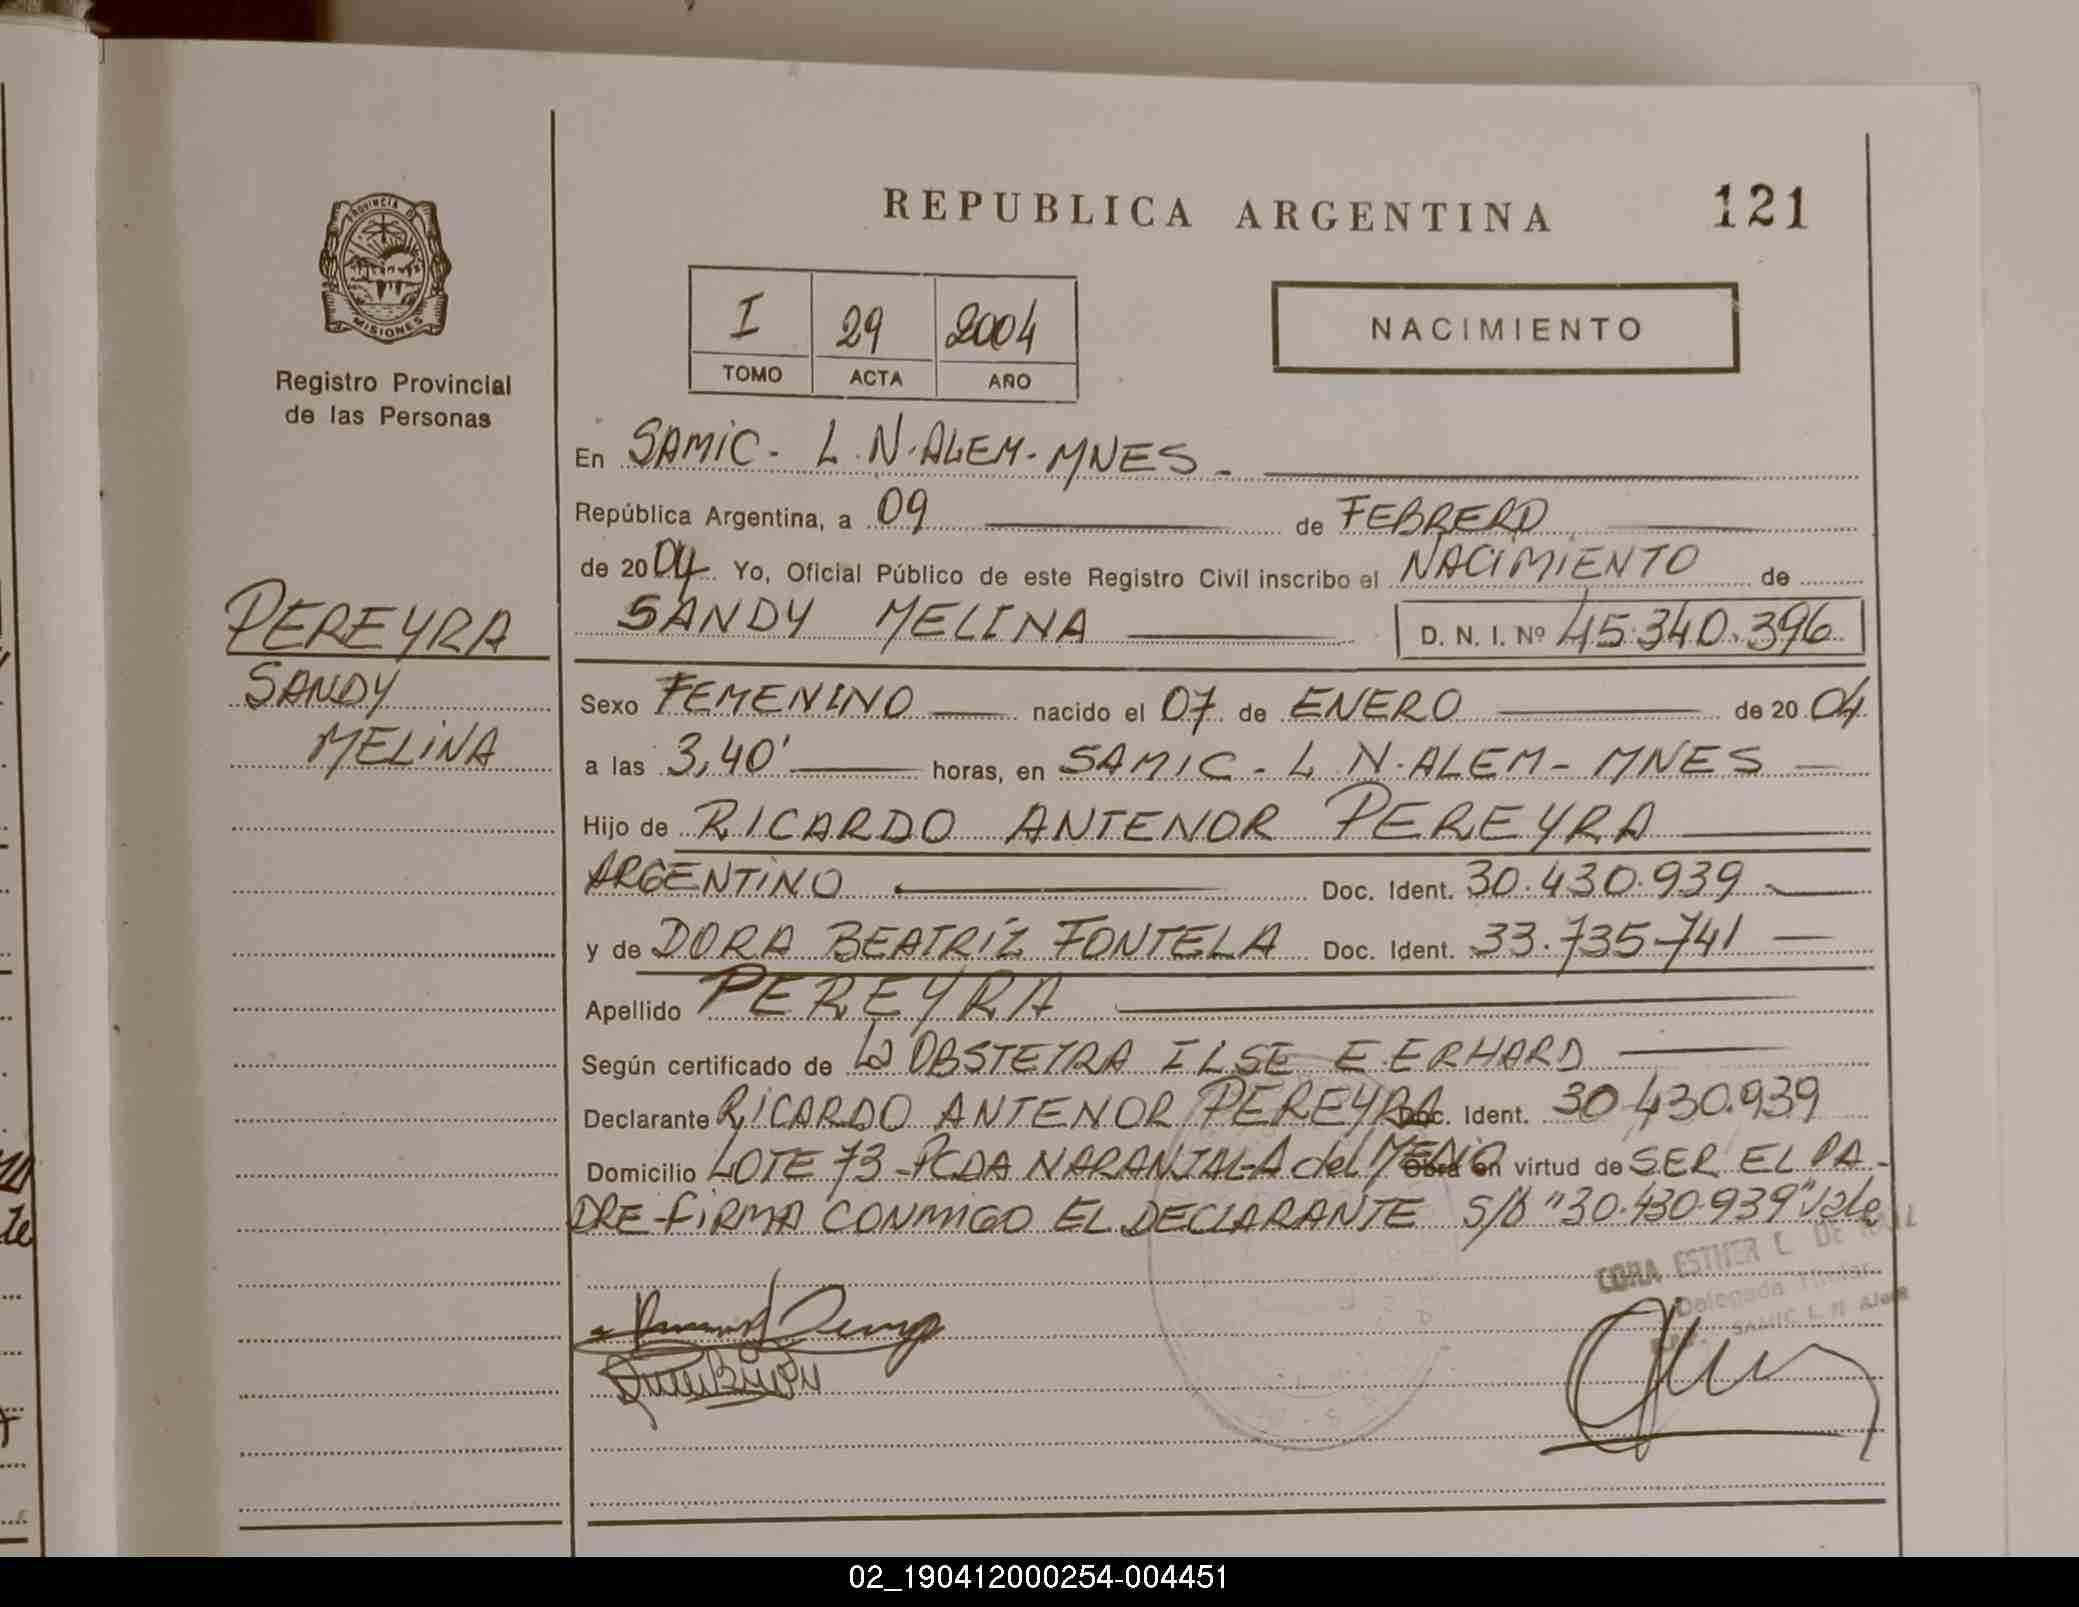 REPUBLICA ARGENTINA 121
PROVINCIA DE
MISIONES
Registro Provincial
de las Personas
I 29 2004
TOMO ACTA AÑO
NACIMIENTO
PEREYRA
SANDY
MELINA
En SAMIC - L. N. ALEM - MNES -
República Argentina, a 09 de FEBRERO
de 2004 Yo, Oficial Público de este Registro Civil inscribo el NACIMIENTO de
SANDY MELINA D. N. I. Nº 45.340.396
Sexo FEMENINO nacido el 07 de ENERO de 2004
a las 3,40' horas, en SAMIC - L. N. ALEM - MNES
Hijo de RICARDO ANTENOR PEREYRA
ARGENTINO Doc. Ident. 30.430.939
y de DORA BEATRIZ FONTELA Doc. Ident. 33.735.741
Apellido PEREYRA
Según certificado de La OBSTETRA ILSE E. ERHARD
Declarante RICARDO ANTENOR PEREYRA Doc. Ident. 30.430.939
Domicilio LOTE 73 - PCDA NARANJAL-A del MEDIO Obra en virtud de SER EL PA-
DRE - FIRMA CONMIGO EL DECLARANTE S/b "30.430.939" Vale
CORA ESTHER L. DE
Delegada Titular
SAMIC L. N. Alem
02_190412000254-004451